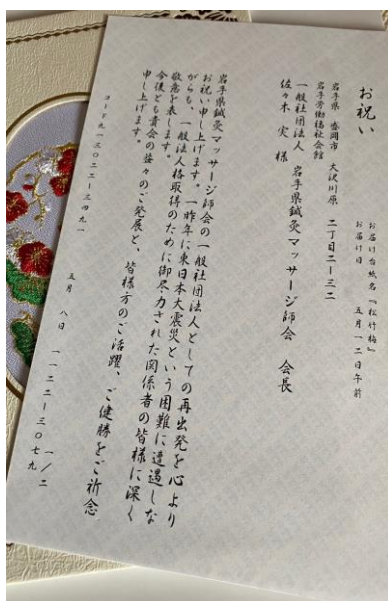 お祝い
お届け台紙名『松竹梅』
お届け日　五月一二日午前
岩手県　盛岡市　大沢川原　二丁目二ー三二
岩手労働福祉会館
一般社団法人　岩手県鍼灸マッサージ師会　会長
佐々木　実　様
岩手県鍼灸マッサージ師会の一般社団法人としての再出発を心より
お祝い申し上げます。一昨年に東日本大震災という困難に遭遇しな
がらも、一般法人格取得のために御尽力された関係者の皆様に深く
敬意を表します。
今後とも貴会の益々のご発展と、皆様方のご活躍、ご健勝をご祈念
申し上げます。
一／二
コード九一三〇二二ー三四九一　五月　八日　一一二二ー三〇七九